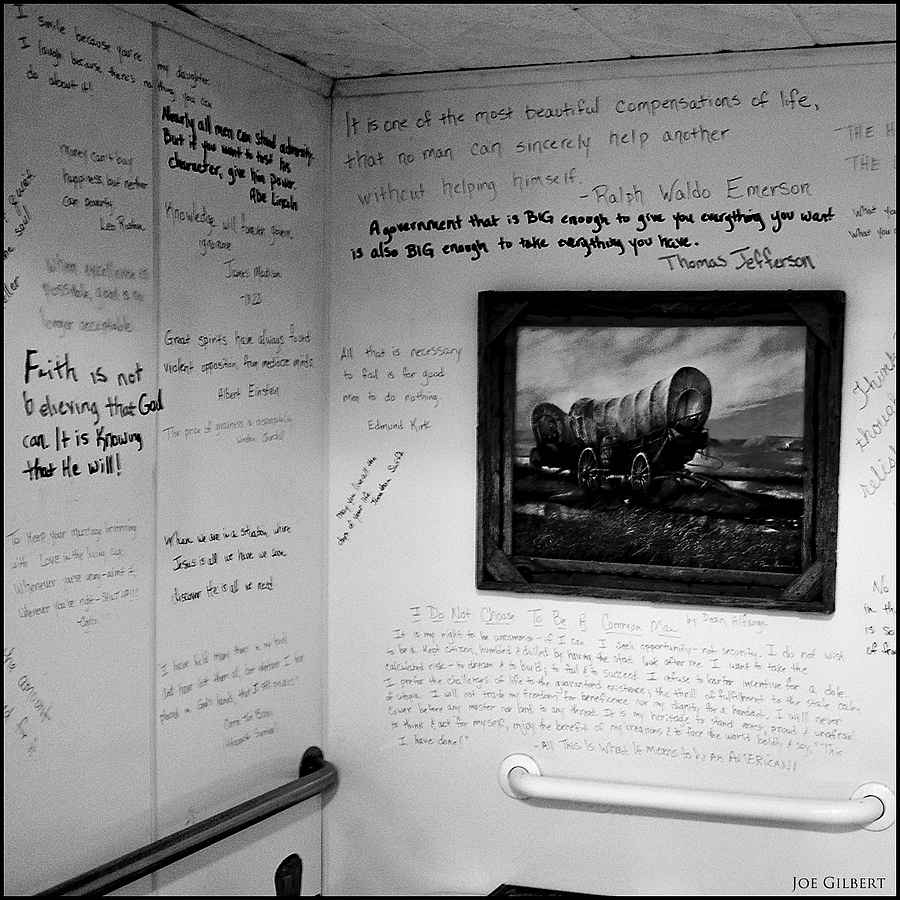 I smile because you're my daughter.
I laugh because there's nothing you can
do about it!
Money can't buy
happiness, but neither
can poverty.
Leo Rosten
When excellence is
possible, good is no
longer acceptable
Faith is not
believing that God
can. It is Knowing
that He will!
To Keep your marriage brimming
with Love in the loving cup,
Whenever you're wrong-admit it,
Whenever you're right-SHUT UP!!!
-Ogden
Nearly all men can stand adversity.
But if you want to test his
character, give him power.
Abe Lincoln
Knowledge will forever govern
ignorance.
James Madison
-1822
Great spirits have always found
violent opposition from mediocre minds.
Albert Einstein
The price of greatness is responsibility.
Winston Churchill
When we are in a situation where
Jesus is all we have we soon
discover He is all we need
I have held many things in my hands
and have lost them all, but whatever I have
placed in God's hands, that I still possess.
Corrie Ten Boom
Holocaust Survivor
It is one of the most beautiful compensations of life,
that no man can sincerely help another
without helping himself.
-Ralph Waldo Emerson
A government that is BIG enough to give you everything you want
is also BIG enough to take everything you have.
Thomas Jefferson
All that is necessary
to fail is for good
men to do nothing.
Edmund
May you live all the
days of your life
Jonathan Swift
I Do Not Choose To Be A Common Man by Dean Alfange
It is my right to be uncommon-if I can. I seek opportunity-not security. I do not wish
to be a Kept citizen, humbled & dulled by having the state look after me. I want to take the
calculated risk-to dream & to build, to fail & to succeed. I refuse to barter incentive for a dole.
I prefer the challenges of life to the guaranteed existence; the thrill of fulfillment to the stale calm
of utopia. I will not trade my freedom for beneficence nor my dignity for a handout. I will never
cower before any master nor bend to any threat. It is my heritage to stand erect, proud & unafraid
to think & act for myself, enjoy the benefit of my creations & to face the world boldly & say, "This
I have done!"
-All This Is What It Means to be An AMERICAN!
THE
THE
What you
What you
Think
though
relish
No
in th
is so
of fr
JOE GILBERT